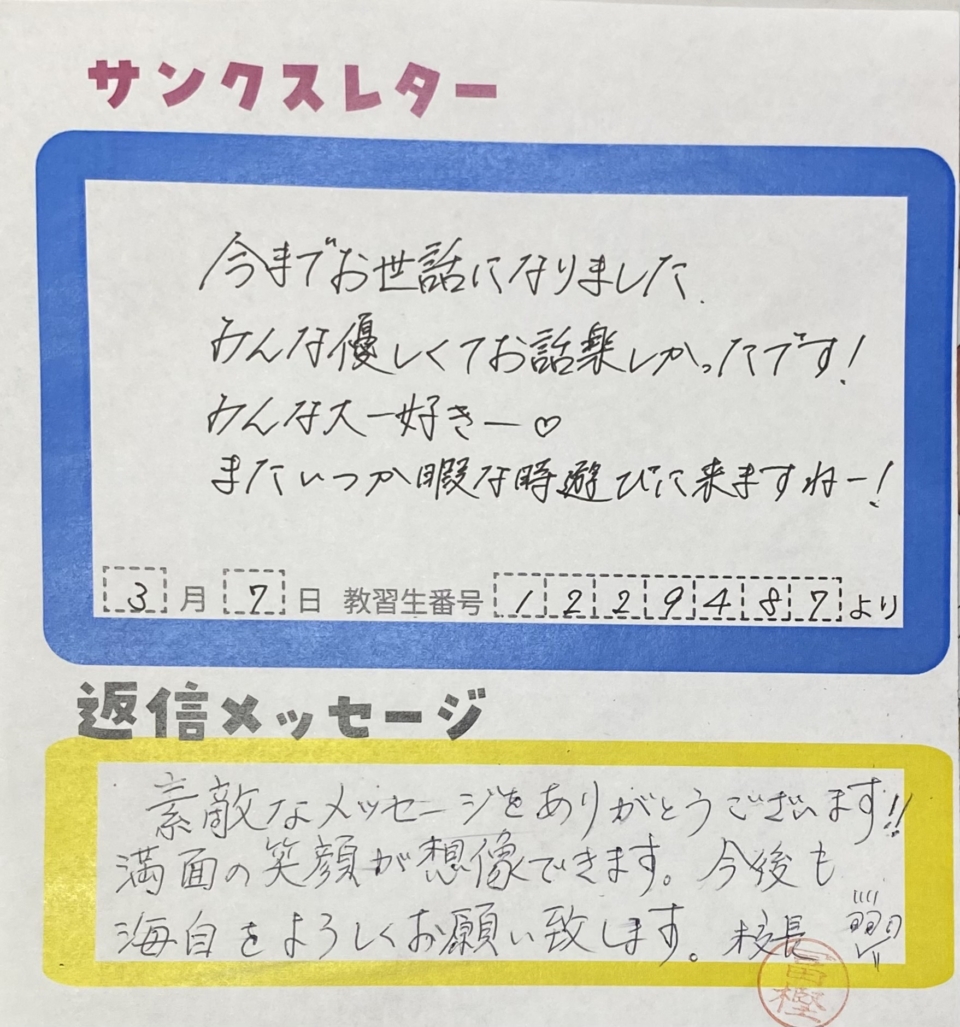 サンクスレター
今までお世話になりました.
みんな優しくてお話楽しかったです!
みんな大一好きー♡
またいつか暇な時遊びに来ますねー!
3月7日 教習生番号 1229487より
返信メッセージ
素敵なメッセージをありがとうございます!!
満面の笑顔が想像できます。今後も
海自をよろしくお願い致します。校長
冨樫